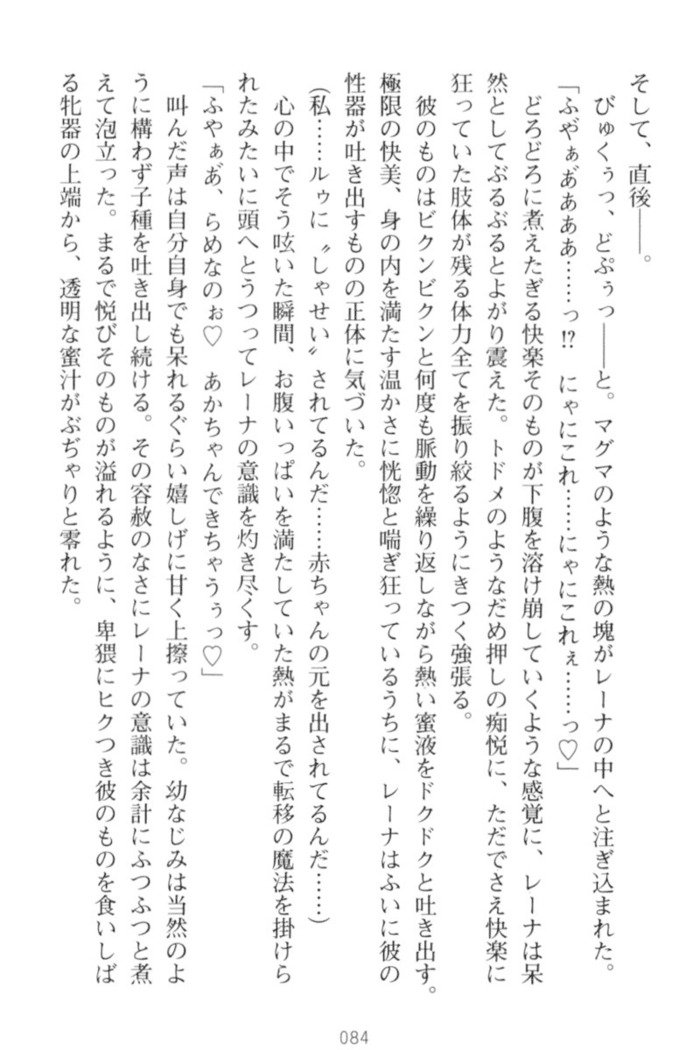 そして、直後――。
　びゅくぅっ、どぷぅっ――と。マグマのような熱の塊がレーナの中へと注ぎ込まれた。
「ふやぁあ゙あああ……っ!?　にゃにこれ……にゃにこれぇ……っ♡」
　どろどろに煮えたぎる快楽そのものが下腹を溶け崩していくような感覚に、レーナは呆
然としてぶるぶるとよがり震えた。トドメのようなだめ押しの痴悦に、ただでさえ快楽に
狂っていた肢体が残る体力全てを振り絞るようにきつく強張る。
　彼のものはビクンビクンと何度も脈動を繰り返しながら熱い蜜液をドクドクと吐き出す。
極限の快美、身の内を満たす温かさに恍惚と喘ぎ狂っているうちに、レーナはふいに彼の
性器が吐き出すものの正体に気づいた。
（私……ルゥに〝しゃせい〟されてるんだ……赤ちゃんの元を出されてるんだ……）
　心の中でそう呟いた瞬間、お腹いっぱいを満たしていた熱がまるで転移の魔法を掛けら
れたみたいに頭へとうつってレーナの意識を灼き尽くす。
「ふやぁあ゙、らめなのぉ♡　あかちゃんできちゃうぅっ♡」
　叫んだ声は自分自身でも呆れるぐらい嬉しげに甘く上擦っていた。幼なじみは当然のよ
うに構わず子種を吐き出し続ける。その容赦のなさにレーナの意識は余計にふつふつと煮
えて泡立った。まるで悦びそのものが溢れるように、卑猥にヒクつき彼のものを食いしば
る牝器の上端から、透明な蜜汁がぶぢゃりと零れた。
084